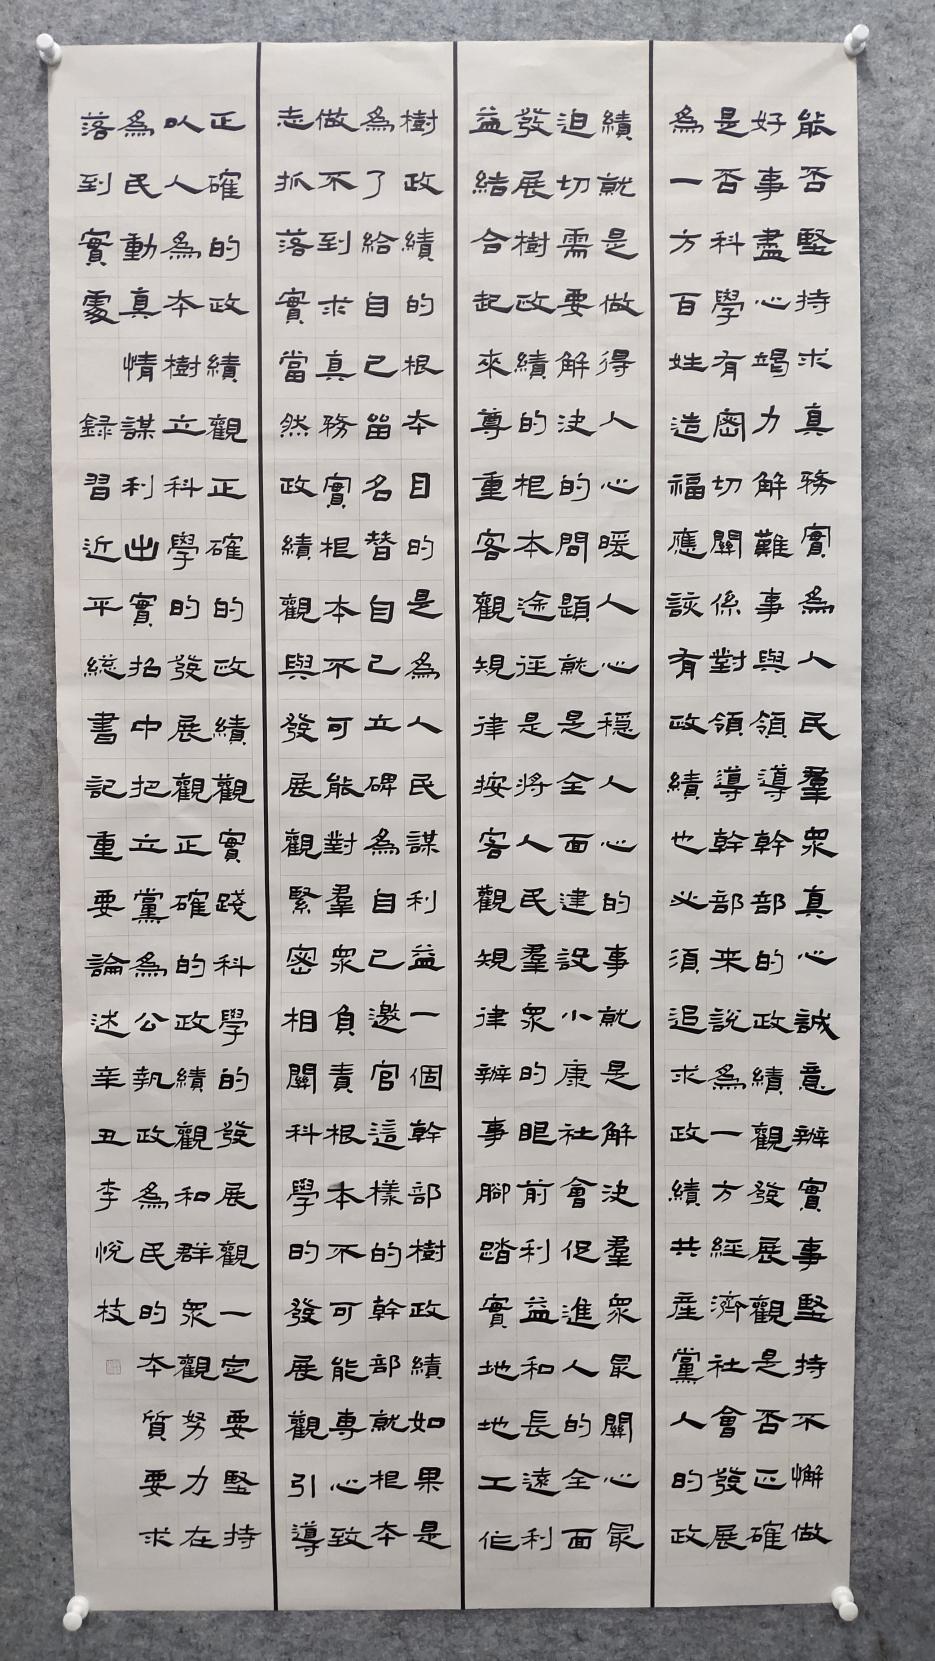 能否堅持求真務實為人民羣眾真心誠意辦實事堅持不懈做
好事盡心竭力解難事與領導幹部的政績觀發展觀是否正確
是否科學有密切關係對領導幹部来說為一方經濟社會發展
為一方百姓造福應該有政績也必須追求政績共產黨人的政
績就是做得人心暖人心穩人心的事就是解決羣眾最關心最
迫切需要解決的問題就是全面建設小康社會促進人的全面
發展樹政績的根本途徑是將人民羣眾的眼前利益和長遠利
益結合起來尊重客觀規律按客觀規律辦事腳踏實地地工作
樹政績的根本目的是為人民謀利益一個幹部樹政績如果是
為了給自己留名替自己立碑為自己邀官這樣的幹部就根本
做不到求真務實根本不可能對羣眾負責根本不可能專心致
志抓落實當然政績觀與發展觀緊密相關科學的發展觀引導
正確的政績觀正確的政績觀實踐科學的發展觀一定要堅持
以人為本樹立科學的發展觀正確的政績觀和群眾觀努力在
為民動真情謀利出實招中把立黨為公執政為民的本質要求
落到實處 録習近平總書記重要論述辛丑李悅枝